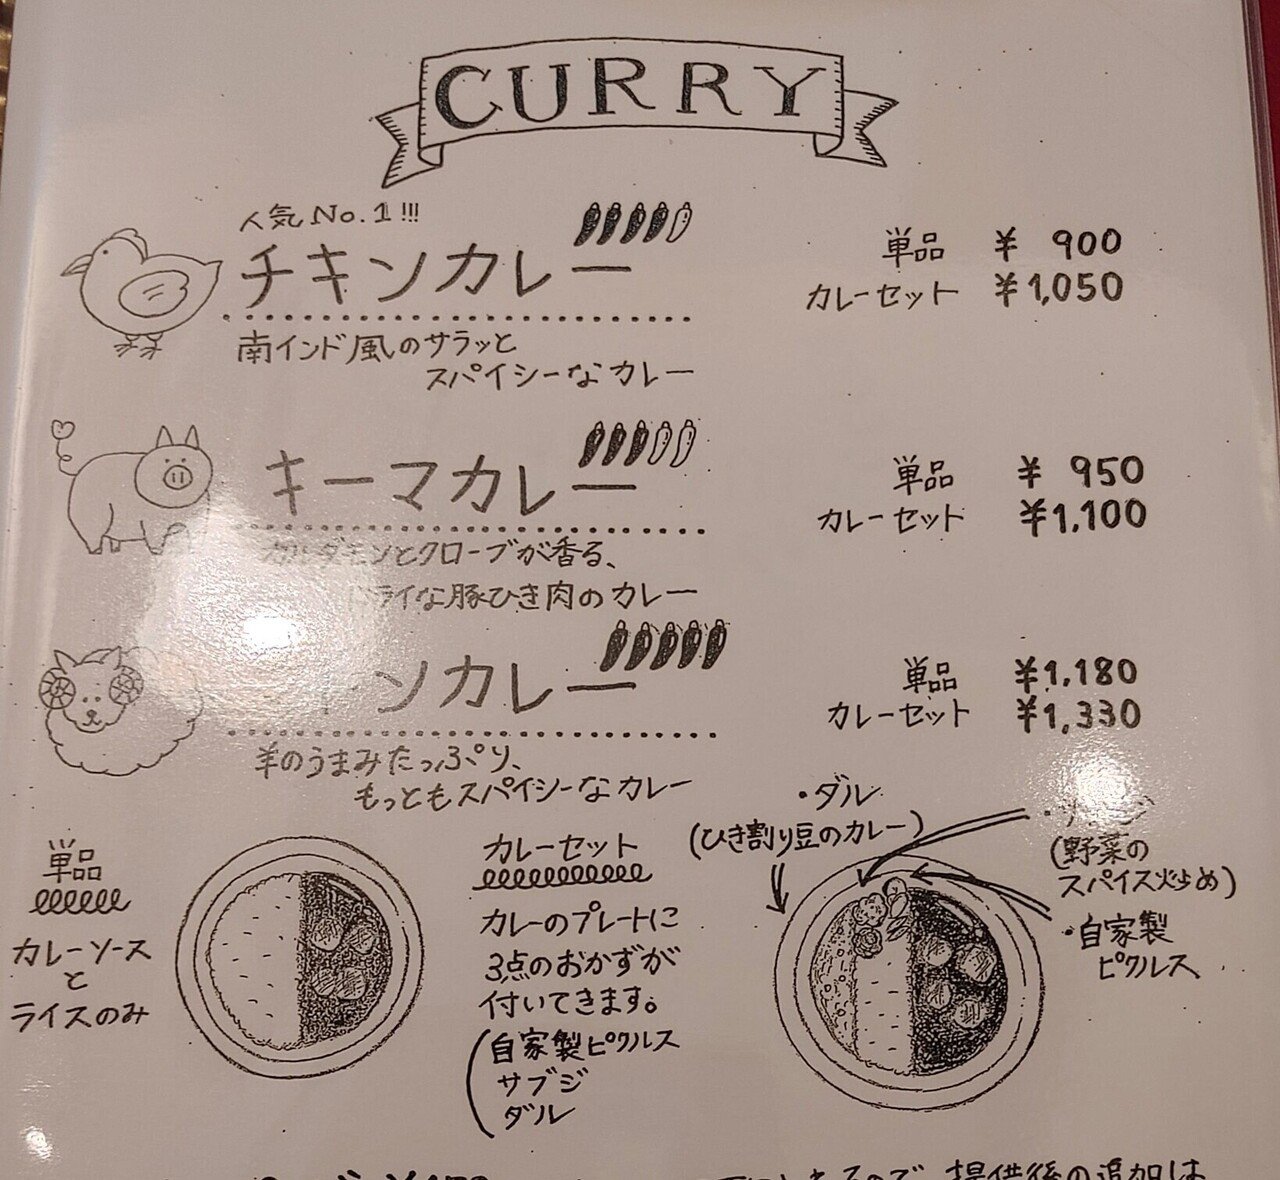 CURRY
人気No.1!!!
チキンカレー
単品 ¥ 900
カレーセット ¥1,050
南インド風のサラッと
スパイシーなカレー
キーマカレー
単品 ¥ 950
カレーセット ¥1,100
カルダモンとクローブが香る、
ドライな豚ひき肉のカレー
ンカレー
単品 ¥1,180
カレーセット ¥1,330
羊のうまみたっぷり、
もっともスパイシーなカレー
単品
カレーソース
と
ライスのみ
カレーセット
カレーのプレートに
3点のおかずが
付いてきます。
(自家製ピクルス
サブジ
ダル
・ダル
(ひき割り豆のカレー)
(野菜の
スパイス炒め)
・自家製
ピクルス
ので、提供後の追加は